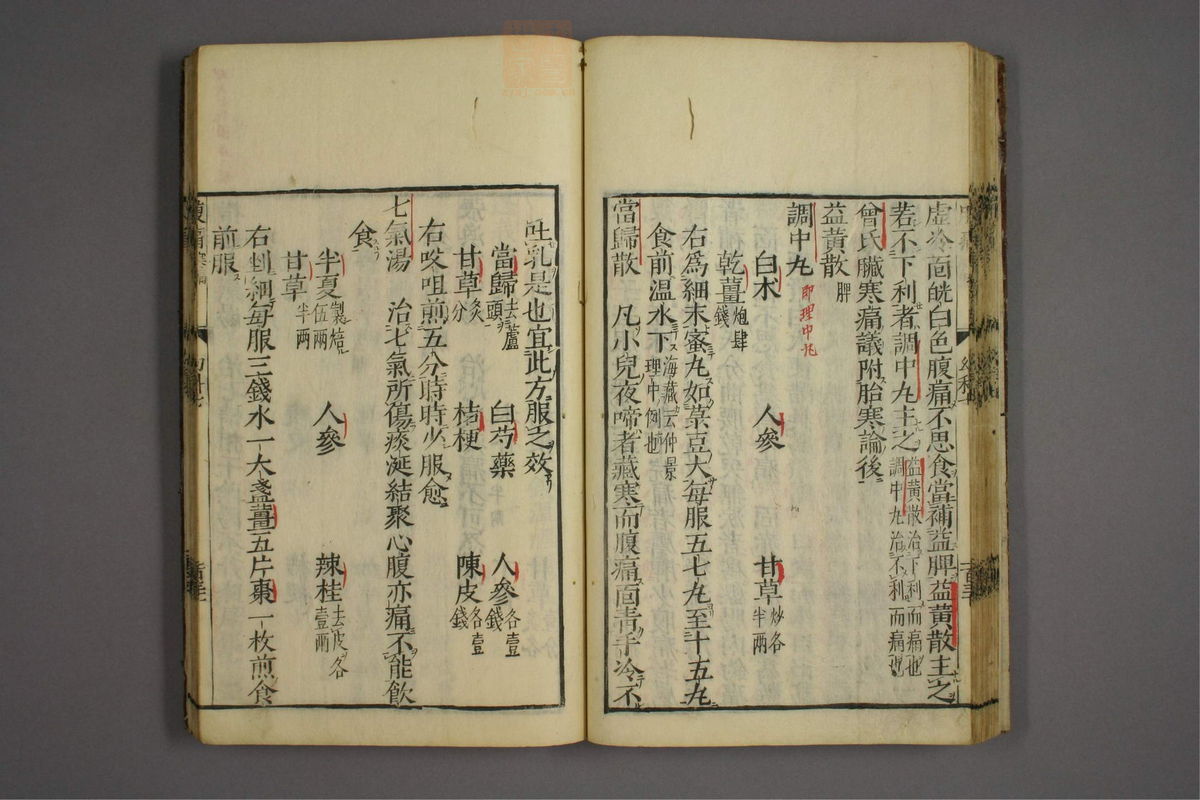 虛冷面㿠白色腹痛不思食當補益脾益黃散主之
若不下利者調中丸主之益黃散治下利而痛也
調中丸治不利而痛也
曾氏臟寒痛議附胎寒論後
益黃散脾
調中丸 即理中丸
白朮 人參 甘草炒各半兩
乾薑炮肆錢
右為細末蜜丸如菉豆大每服五七丸至十五丸
食前温水下海藏云仲景理中例也
當歸散 凡小兒夜啼者藏寒而腹痛面青手冷不
吐乳是也宜此方服之效
當歸去蘆頭 白芍藥 人參各壹錢
甘草炙分 桔梗 陳皮各壹錢
右㕮咀煎五分時時少服愈
七氣湯 治七氣所傷痰涎結聚心腹亦痛不能飲
食
半夏製焙伍兩 人參 辣桂去皮各壹兩
甘草半兩
右剉細每服三錢水一大盞薑五片棗一枚煎食
前服